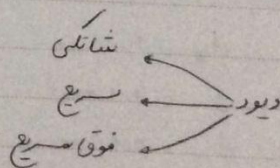 دیود
شاتکی
سریع
فوق سریع